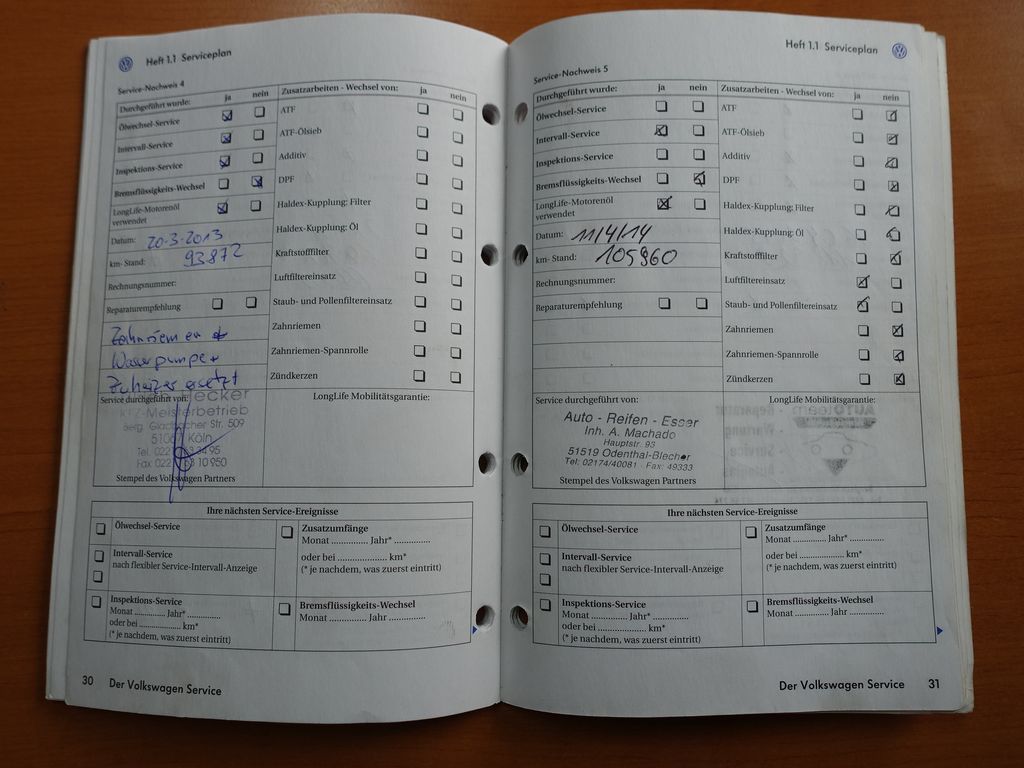 Heft 1.1 Serviceplan
Service-Nachweis 4
Durchgeführt wurde: ja nein
Ölwechsel-Service
Intervall-Service
Inspektions-Service
Bremsflüssigkeits-Wechsel
LongLife-Motorenöl
verwendet
Datum: 20-3-2013
km- Stand: 93872
Rechnungsnummer:
Reparaturempfehlung
Zahnriemen
Wasserpumpe +
Zuheizer ersetzt
Zusatzarbeiten - Wechsel von: ja nein
ATF
ATF-Ölsieb
Additiv
DPF
Haldex-Kupplung: Filter
Haldex-Kupplung: Öl
Kraftstofffilter
Luftfiltereinsatz
Staub- und Pollenfiltereinsatz
Zahnriemen
Zahnriemen-Spannrolle
Zündkerzen
Service durchgeführt von:
ecker
KFZ-Meisterbetrieb
Berg. Gladbacher Str. 509
Köln
Tel. 022
Fax 022
Stempel des Volkswagen Partners
LongLife Mobilitätsgarantie:
Ihre nächsten Service-Ereignisse
Ölwechsel-Service
Intervall-Service
nach flexibler Service-Intervall-Anzeige
Inspektions-Service
Monat ............. Jahr* ..............
oder bei ...................... km*
(* je nachdem, was zuerst eintritt)
Zusatzumfänge
Monat .............. Jahr* ..............
oder bei .................... km*
(* je nachdem, was zuerst eintritt)
Bremsflüssigkeits-Wechsel
Monat .............. Jahr ..............
30 Der Volkswagen Service
Heft 1.1 Serviceplan
Service-Nachweis 5
Durchgeführt wurde: ja nein
Ölwechsel-Service
Intervall-Service
Inspektions-Service
Bremsflüssigkeits-Wechsel
LongLife-Motorenöl
verwendet
Datum: 11/4/14
km- Stand: 105960
Rechnungsnummer:
Reparaturempfehlung
Zusatzarbeiten - Wechsel von: ja nein
ATF
ATF-Ölsieb
Additiv
DPF
Haldex-Kupplung: Filter
Haldex-Kupplung: Öl
Kraftstofffilter
Luftfiltereinsatz
Staub- und Pollenfiltereinsatz
Zahnriemen
Zahnriemen-Spannrolle
Zündkerzen
Service durchgeführt von:
Auto - Reifen - Esser
Inh. A. Machado
Hauptstr. 93
51519 Odenthal-Blecher
Tel: 02174/40081 Fax: 49333
Stempel des Volkswagen Partners
LongLife Mobilitätsgarantie:
Ihre nächsten Service-Ereignisse
Ölwechsel-Service
Intervall-Service
nach flexibler Service-Intervall-Anzeige
Inspektions-Service
Monat .............. Jahr* ..............
oder bei ...................... km*
(* je nachdem, was zuerst eintritt)
Zusatzumfänge
Monat .............. Jahr* ..............
oder bei .................... km*
(* je nachdem, was zuerst eintritt)
Bremsflüssigkeits-Wechsel
Monat .............. Jahr ..............
Der Volkswagen Service 31